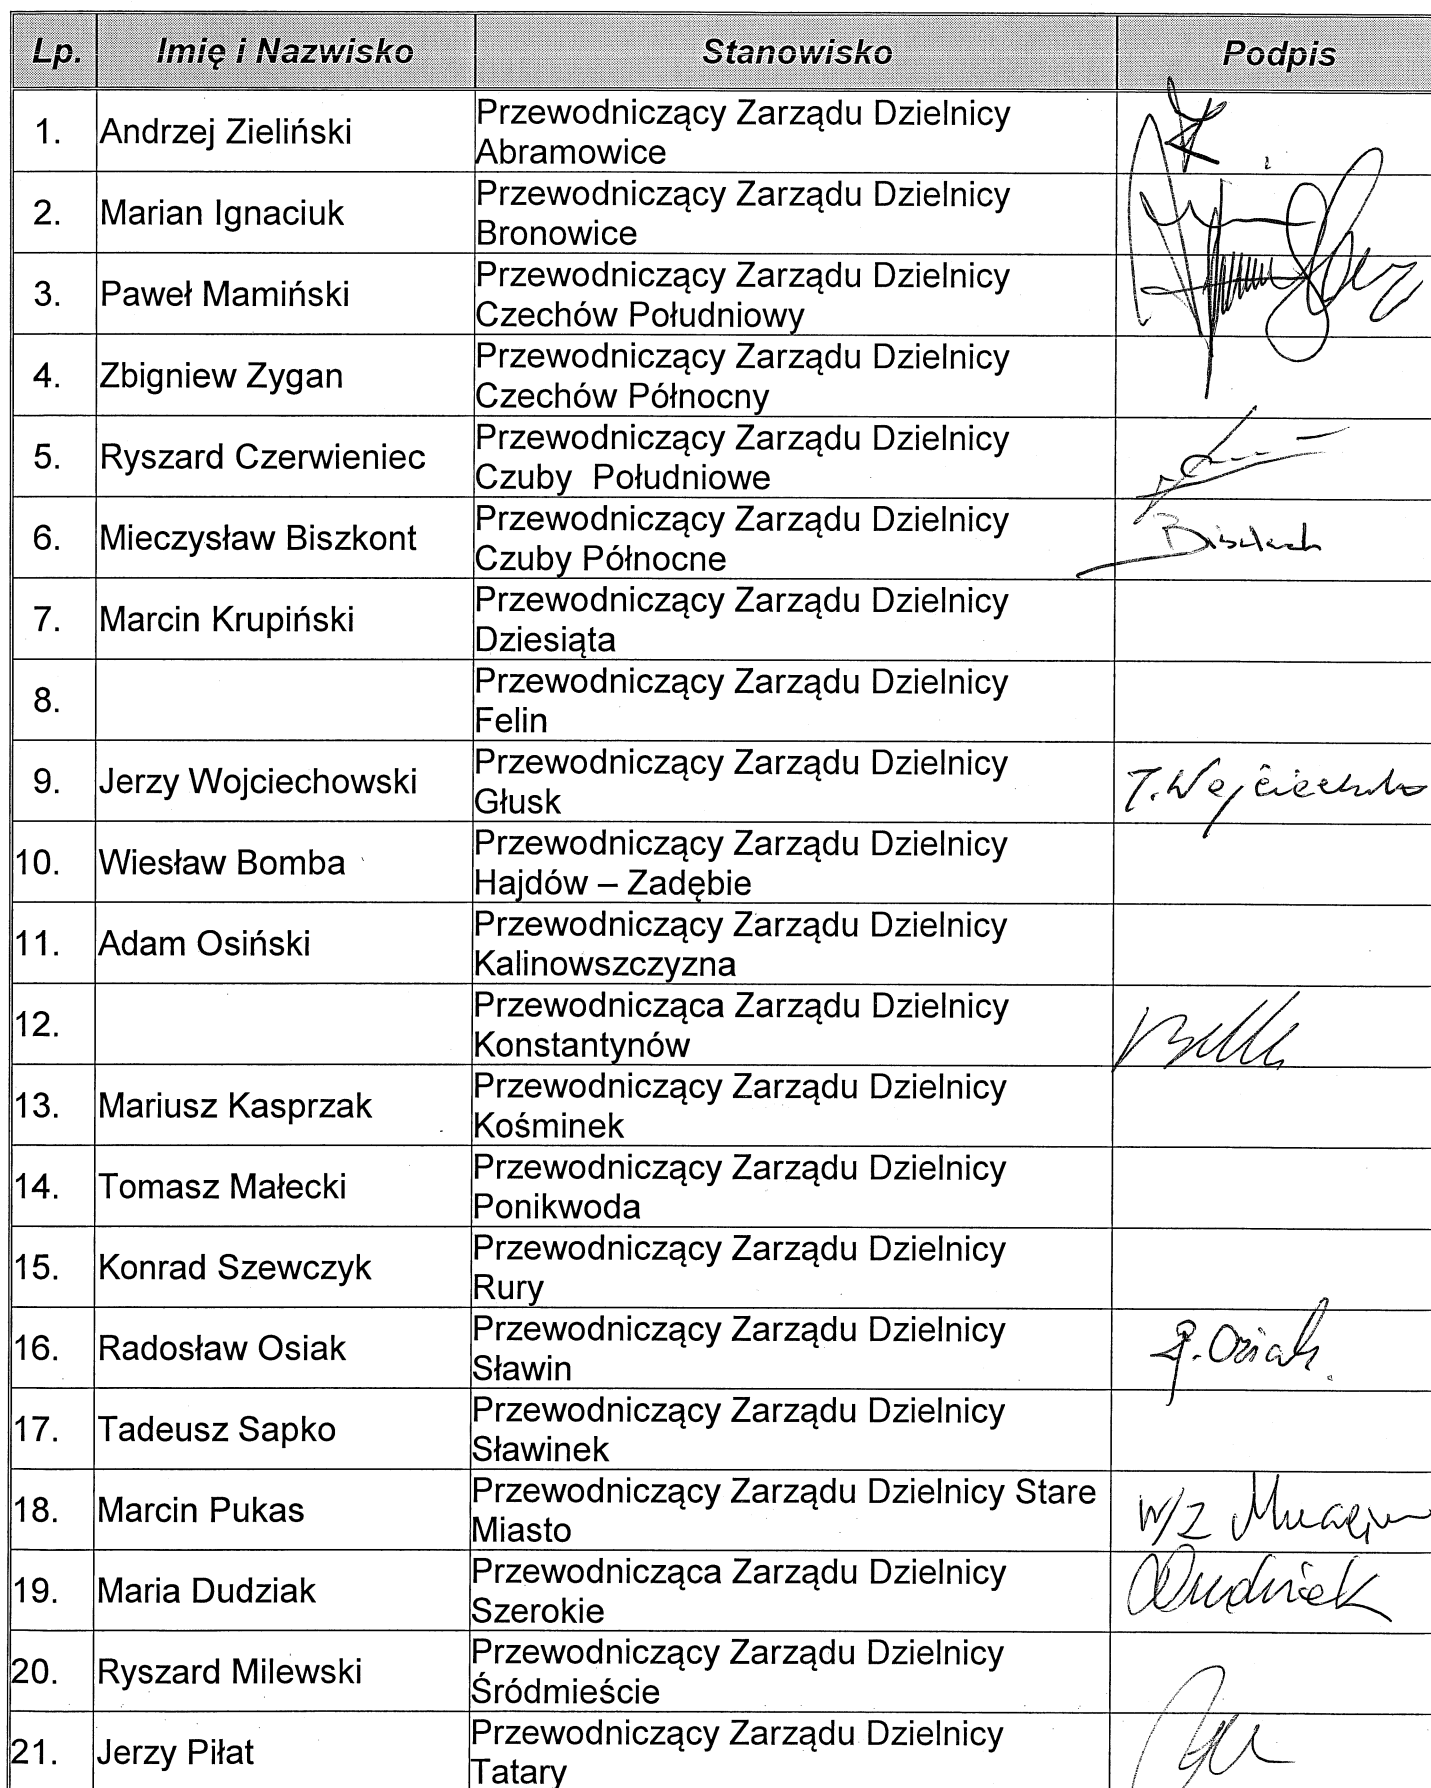 Lp. Imię i Nazwisko Stanowisko Podpis
1. Andrzej Zieliński Przewodniczący Zarządu Dzielnicy
Abramowice
2. Marian Ignaciuk Przewodniczący Zarządu Dzielnicy
Bronowice
3. Paweł Mamiński Przewodniczący Zarządu Dzielnicy
Czechów Południowy
4. Zbigniew Zygan Przewodniczący Zarządu Dzielnicy
Czechów Północny
5. Ryszard Czerwieniec Przewodniczący Zarządu Dzielnicy
Czuby Południowe
6. Mieczysław Biszkont Przewodniczący Zarządu Dzielnicy
Czuby Północne
7. Marcin Krupiński Przewodniczący Zarządu Dzielnicy
Dziesiąta
8. Przewodniczący Zarządu Dzielnicy
Felin
9. Jerzy Wojciechowski Przewodniczący Zarządu Dzielnicy
Głusk
10. Wiesław Bomba Przewodniczący Zarządu Dzielnicy
Hajdów – Zadębie
11. Adam Osiński Przewodniczący Zarządu Dzielnicy
Kalinowszczyzna
12. Przewodnicząca Zarządu Dzielnicy
Konstantynów
13. Mariusz Kasprzak Przewodniczący Zarządu Dzielnicy
Kośminek
14. Tomasz Małecki Przewodniczący Zarządu Dzielnicy
Ponikwoda
15. Konrad Szewczyk Przewodniczący Zarządu Dzielnicy
Rury
16. Radosław Osiak Przewodniczący Zarządu Dzielnicy R. Osiak
Sławin
17. Tadeusz Sapko Przewodniczący Zarządu Dzielnicy
Sławinek
18. Marcin Pukas Przewodniczący Zarządu Dzielnicy Stare w/z
Miasto
19. Maria Dudziak Przewodnicząca Zarządu Dzielnicy Dudziak
Szerokie
20. Ryszard Milewski Przewodniczący Zarządu Dzielnicy
Śródmieście
21. Jerzy Piłat Przewodniczący Zarządu Dzielnicy
Tatary